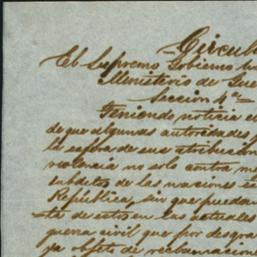 Circul
El Supremo Gobierno
Ministerio de Gue
Seccion 4ª
Teniendo noticia e
de que algunas autoridades
la esfera de sus atribucion
violencia no solo contra
subditos de las naciones
República, sin que puedan
de estos en las actuales
guerra civil que por desgra
ya objeto de reclamacion